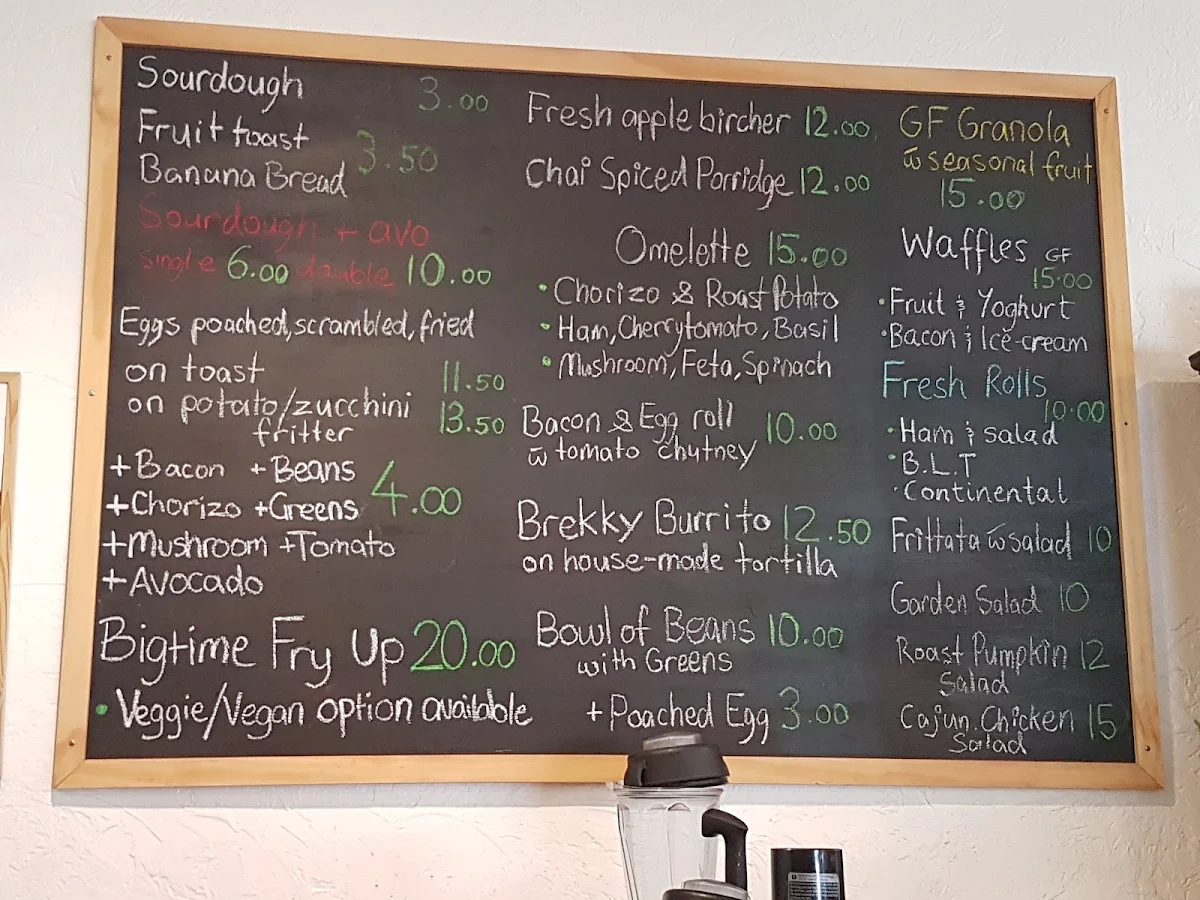 Sourdough 3.00
Fruit toast
Banana Bread 3.50
Sourdough + avo
single 6.00 double 10.00
Eggs poached, scrambled, fried
on toast 11.50
on potato/zucchini 13.50
fritter
+Bacon +Beans
+Chorizo +Greens 4.00
+Mushroom +Tomato
+Avocado
Bigtime Fry Up 20.00
• Veggie/Vegan option available
Fresh apple bircher 12.00
Chai Spiced Porridge 12.00
Omelette 15.00
• Chorizo & Roast Potato
• Ham, Cherrytomato, Basil
• Mushroom, Feta, Spinach
Bacon & Egg roll 10.00
w̄ tomato chutney
Brekky Burrito 12.50
on house-made tortilla
Bowl of Beans 10.00
with Greens
+ Poached Egg 3.00
GF Granola
w̄ seasonal fruit
15.00
Waffles GF
15.00
• Fruit & Yoghurt
• Bacon & Ice-cream
Fresh Rolls
10.00
• Ham & salad
• B.L.T
• Continental
Frittata w̄ salad 10
Garden Salad 10
Roast Pumpkin 12
Salad
Cajun Chicken 15
Salad